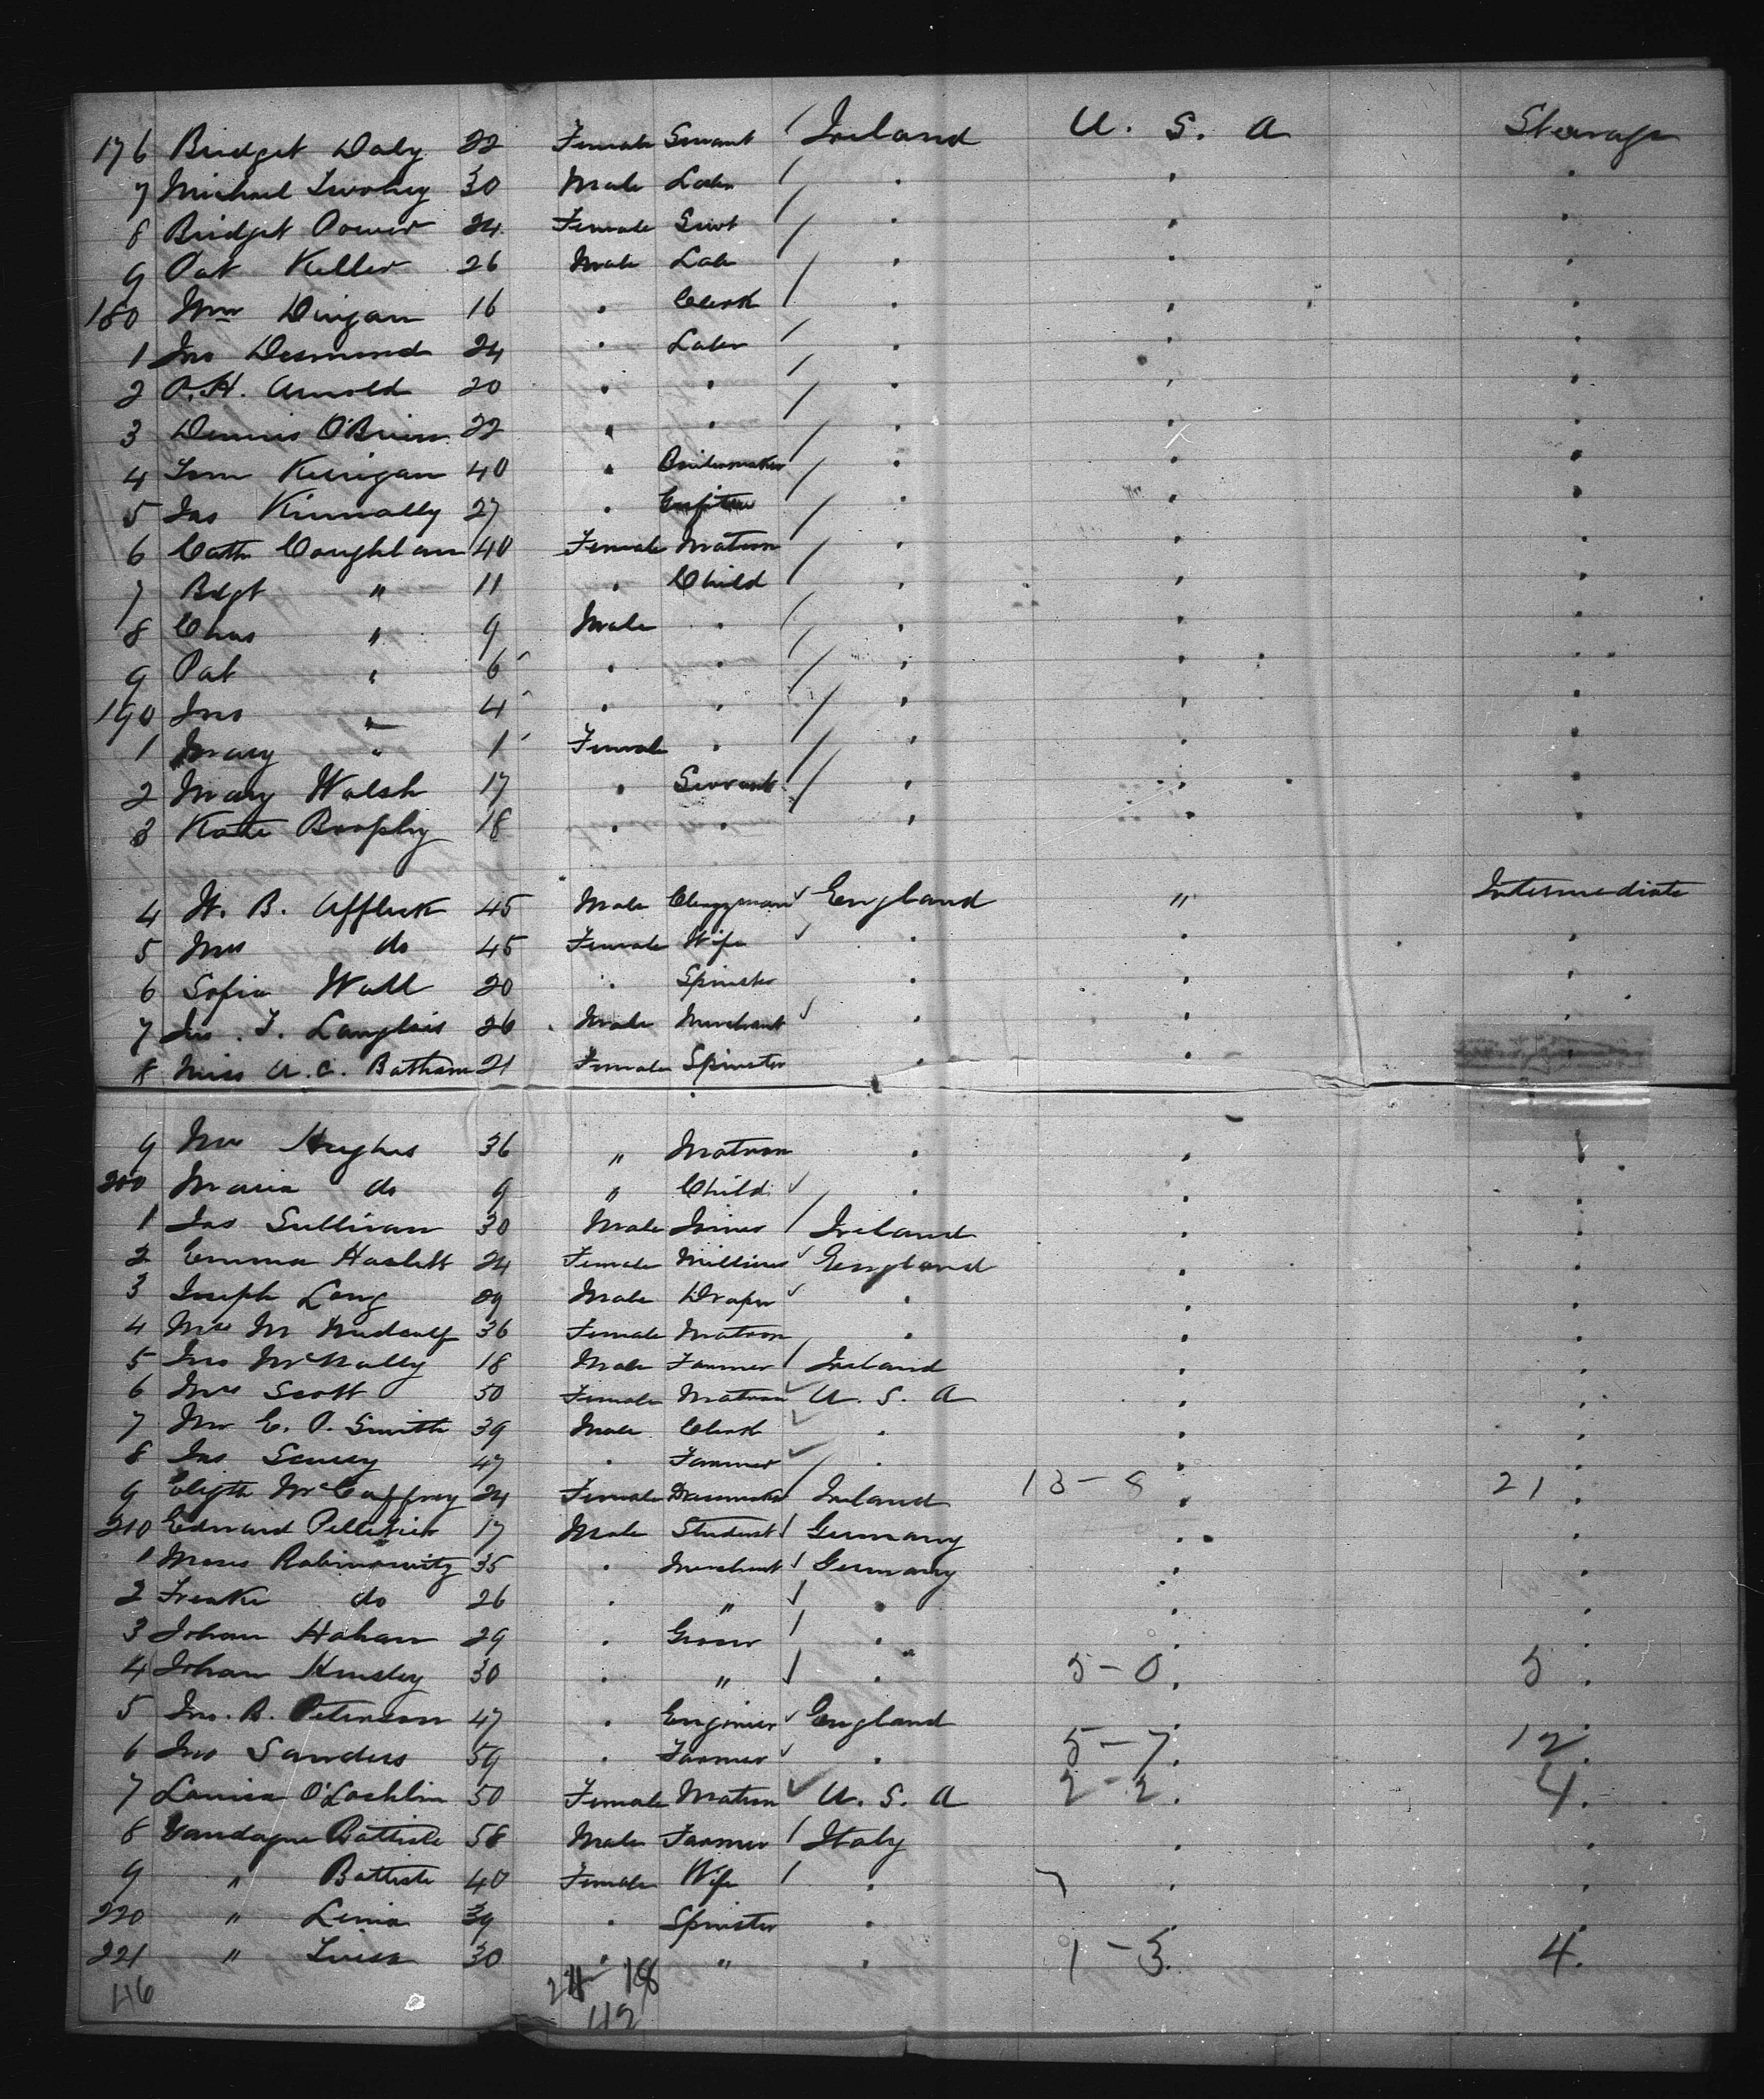 176 Bridget Daly 22 Female Servant / Ireland U. S. A Steerage
7 Michael Twohey 30 Male Labr / " " "
8 Bridget Power 24 Female Servt / " " "
9 Pat Keller 26 Male Labr / " " "
180 Wm Dingan 16 " Clerk / " " "
1 Jno Desmond 24 " Labr / " " "
2 P. H. Arnold 20 " " / " " "
3 Dennis O'Brien 22 " " / " " "
4 Tom Kerrigan 40 " Boilermaker / " " "
5 Jas Kinnally 27 " Gasfitter / " " "
6 Cath Coughlan 40 Female Matron / " " "
7 Bdgt " 11 " Child / " " "
8 Chas " 9 Male " / " " "
9 Pat " 6 " " / " " "
190 Jno " 4 " " / " " "
1 Mary " 1 Female " / " " "
2 Mary Walsh 17 " Servant / " " "
3 Kate Brophy 18 " " " " "
4 W. B. Affleck 45 Male Clergyman ✓ England " Intermediate
5 Mrs do 45 Female Wife ✓ " " "
6 Sofia Wall 20 " Spinster " " "
7 Jno. T. Langlois 26 Male Merchant ✓ " " "
8 Miss A. C. Batham 21 Female Spinster " " "
9 Mrs Hughes 36 " Matron " " "
200 Maria do 9 " Child ✓ " " "
1 Jas Sullivan 30 Male Joiner / Ireland " "
2 Emma Haslett 24 Female Milliner ✓ England " "
3 Joseph Long 29 Male Draper ✓ " " "
4 Mrs M Medcalf 36 Female Matron " " "
5 Jno McNally 18 Male Farmer / Ireland " "
6 Mrs Scott 50 Female Matron ✓ U. S. A " "
7 Mr E. P. Smith 39 Male Clerk ✓ " " "
8 Jas 47 " Farmer ✓ " " "
9 Elizth McCaffrey 24 Female Dressmaker / Ireland 13-8 " 21 "
210 Edward Pelletier 17 Male Student / Germany " "
1 Moses Rabinowitz 35 " Merchant / Germany " "
2 do 26 " " / " " "
3 Johan Hahan 29 " Grocer / " " "
4 Johan 30 " " / " 5-0 " 5 "
5 Jno. B. Peterson 47 " Engineer ✓ England " "
6 Jno Sanders 59 " Farmer ✓ " 5-7 " 12 "
7 Louisa O'Lochlin 50 Female Matron ✓ U. S. A 2-2 " 4 "
8 Battiste 58 Male Farmer / Italy " "
9 " Battiste 40 Female Wife / " " "
220 " Lenia 39 " Spinster " " "
221 " Luisa 30 " " " 1-3 " 4 "
46 18
42